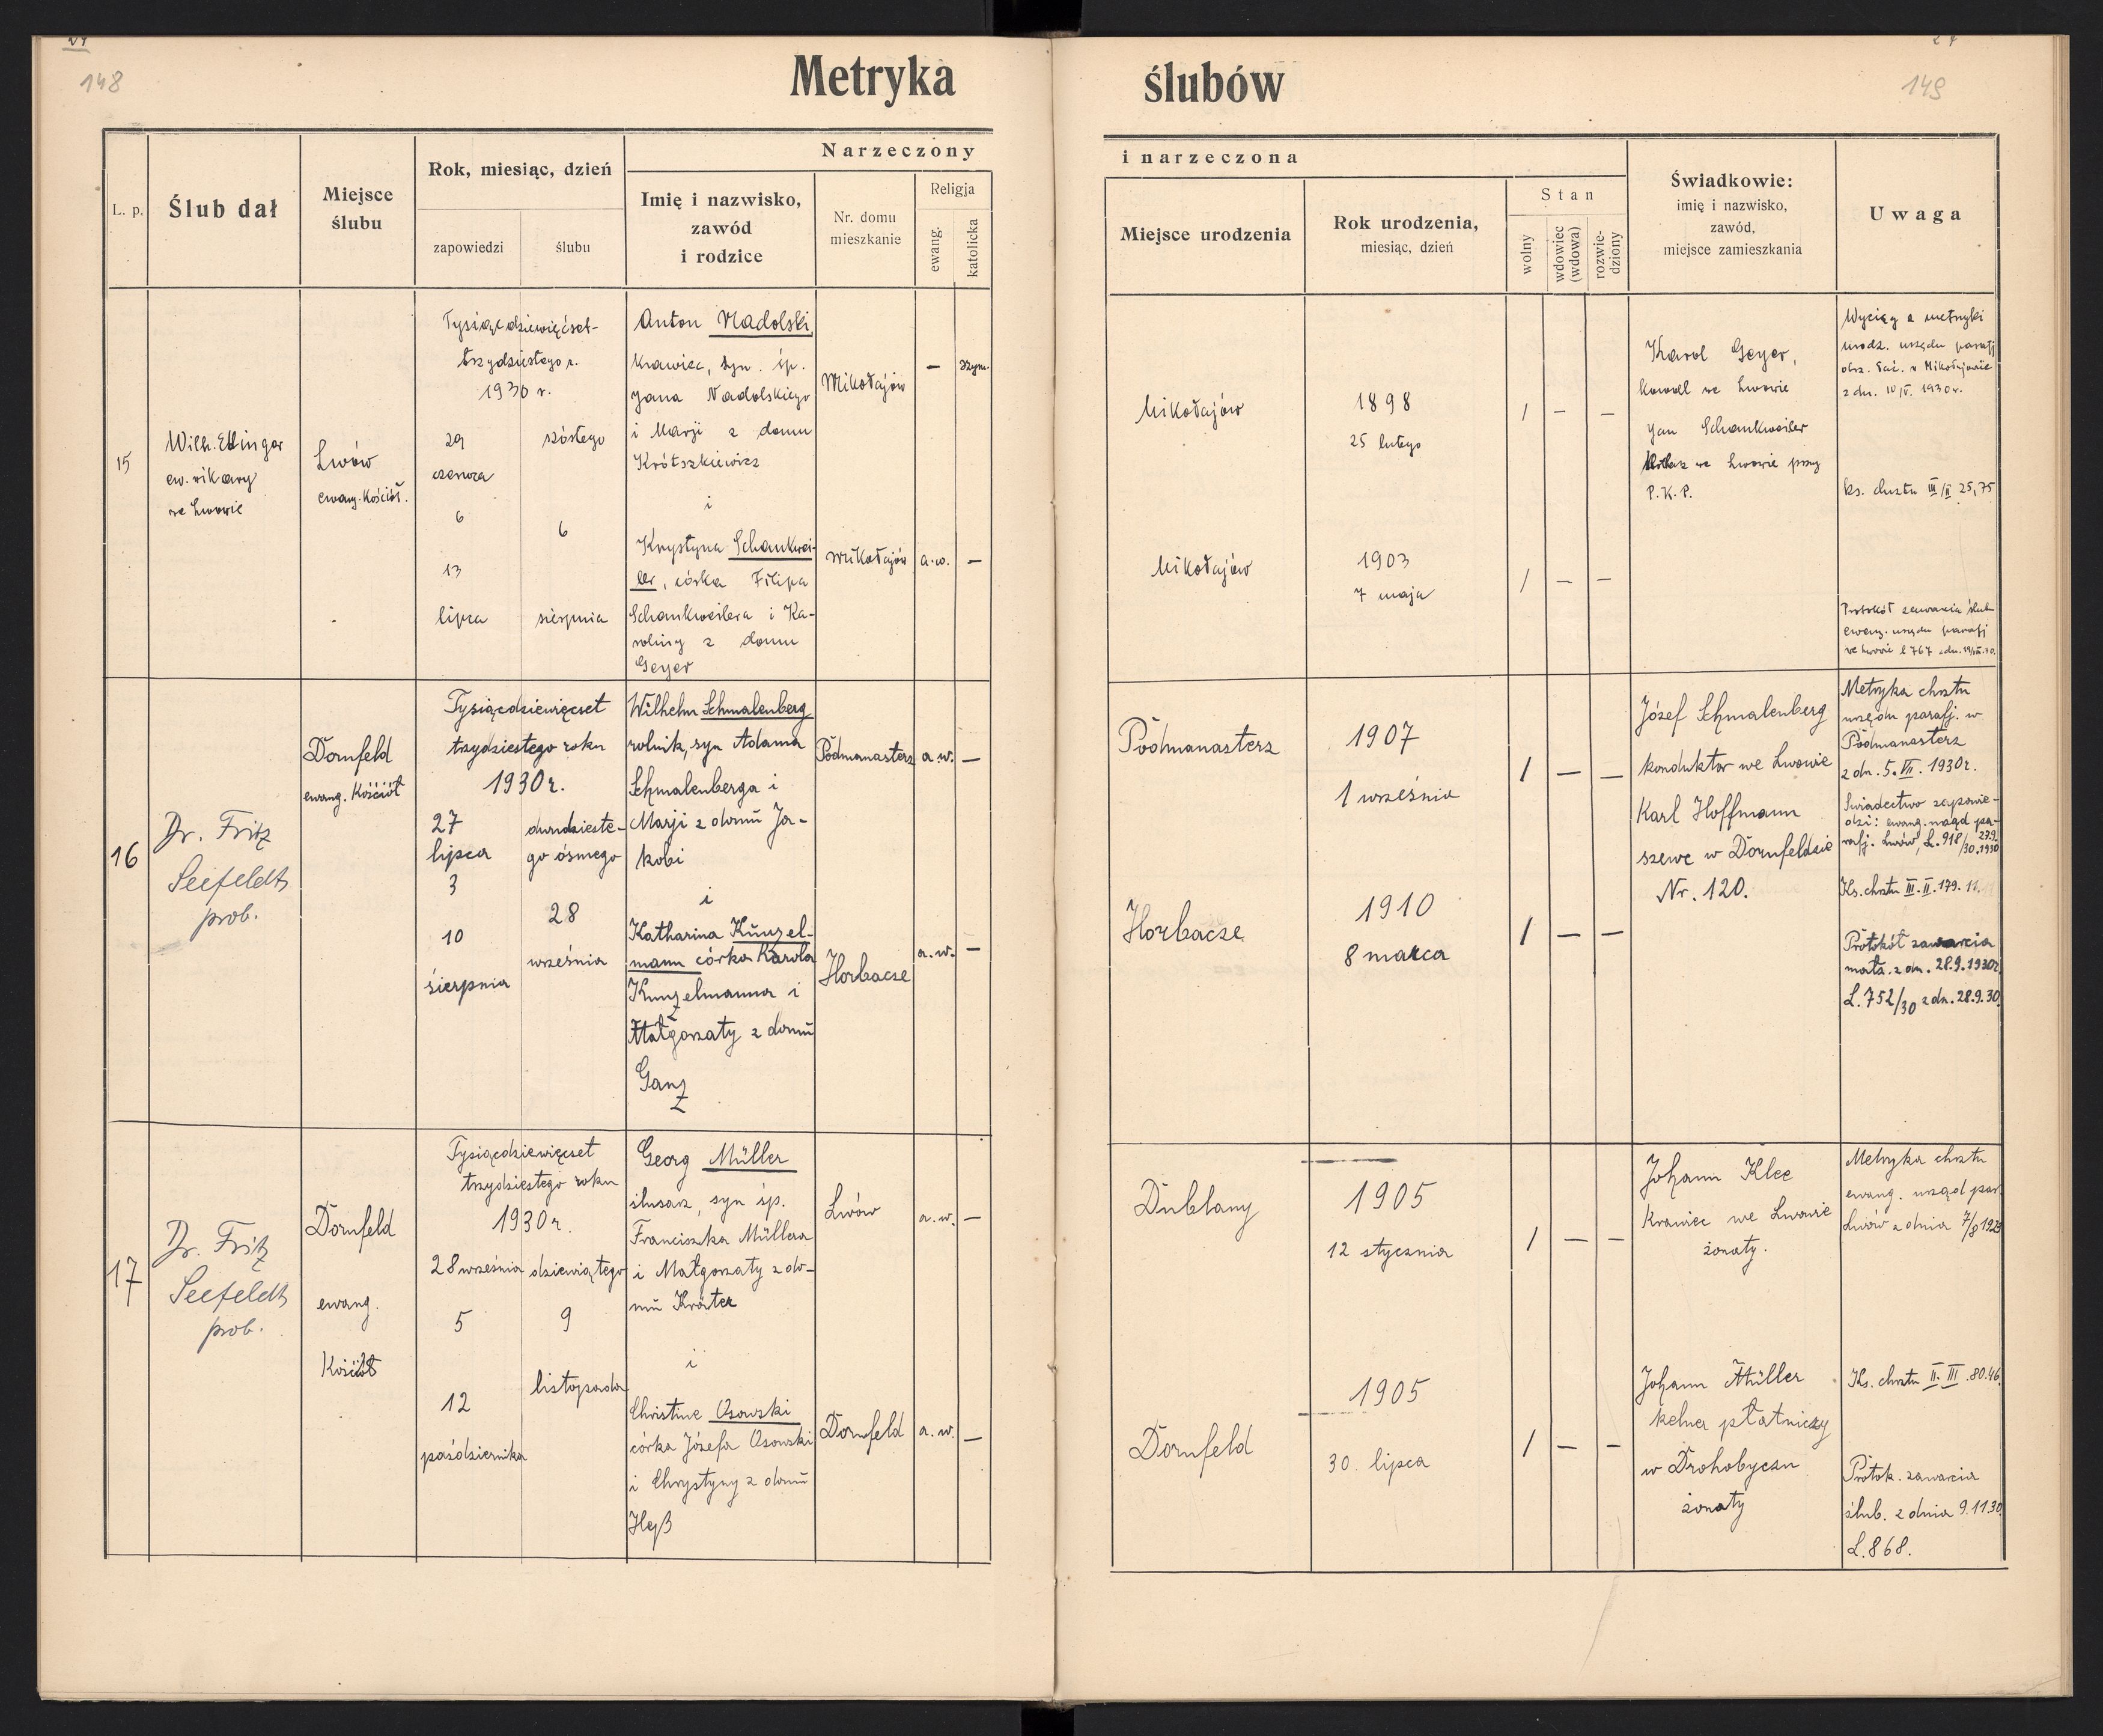 148
149
Metryka ślubów
Narzeczony
i narzeczona
L. p.
Ślub dał
Miejsce
ślubu
Rok, miesiąc, dzień
zapowiedzi
ślubu
Imię i nazwisko,
zawód
i rodzice
Nr. domu
mieszkanie
Religja
ewang.
katolicka
Miejsce urodzenia
Rok urodzenia,
miesiąc, dzień
Stan
wolny
wdowiec
(wdowa)
rozwie-
dziony
Świadkowie:
imię i nazwisko,
zawód,
miejsce zamieszkania
Uwaga
15
Wilh. Ettinger
ew. wikary
we Lwowie
Lwów
ewang. Kościół.
Tysiącdziewięćset-
trzydziestego r.
1930 r.
29
czerwca
6
13
lipca
szóstego
6
sierpnia
Anton Nadolski
krawiec, syn śp.
Jana Nadolskiego
i Marji z domu
Krótszkiewicz
i
Krystyna Schankwei-
ler, córka Filipa
Schankweilera i Ka-
roliny z domu
Geyer
Mikołajów
— rzym.
Mikołajów
a.w. —
Mikołajów
1898
25 lutego
/ — —
Mikołajów
1903
7 maja
/ — —
Karol Geyer,
kowal we Lwowie
Jan Schankweiler
we Lwowie przy
P.K.P.
Wyciąg z metryki
urodz. urzędu parafj
obrz. łać. w Mikołajowie
z dn. 10/V. 1930 r.
ks. chrztu III/II 25,75
Protokół zawarcia ślub
ewang. urzędu parafj
we Lwowie l 767
16
Dr. Fritz
Seefeldt
prob.
Dornfeld
ewang. Kościół
Tysiącdziewięcset
trzydziestego roku
1930 r.
27
lipca
3
10
sierpnia
dwudzieste-
go ósmego
28
września
Wilhelm Schmalenberg
rolnik, syn Adama
Schmalenberga i
Marji z domu Ja-
kobi
i
Katharina Kunzel-
mann córka Karola
Kunzelmanna i
Małgorzaty z domu
Ganz
Podmanasterz
a.w. —
Horbacze
a.w. —
Podmanasterz
1907
1 września
/ — —
Horbacze
1910
8 marca
/ — —
Józef Schmalenberg
konduktor we Lwowie
Karl Hoffmann
szewc w Dornfeldzie
Nr. 120.
Metryka chrztu
urzędu parafj. w
Podmanasterz
z dn. 5. VII. 1930 r.
Świadectwo zapowie-
dzi: ewang. urząd pa-
rafj. Lwów, L. 918/30 27.9.1930
Ks. chrztu III. II. 179. 11.
Protokół zawarcia
małż. z dn. 28.9.1930r.
L. 752/30 z dn. 28.9.30
17
Dr. Fritz
Seefeldt
prob.
Dornfeld
ewang.
Kościół
Tysiącdziewięcset
trzydziestego roku
1930 r.
28 września
5
12
października
dziewiątego
9
listopada
Georg Müller
ślusarz, syn śp.
Franciszka Müllera
i Małgorzaty z do-
mu Kröter
i
Christine Osowski
córka Józefa Osowski
i Chrystyny z domu
Heß
Lwów
a.w. —
Dornfeld
a.w. —
Dublany
1905
12 stycznia
/ — —
Dornfeld
1905
30 lipca
/ — —
Johann Klee
krawiec we Lwowie
żonaty.
Johann Müller
kelner płatniczy
w Drohobyczu
żonaty
Metryka chrztu
ewang. urząd par.
Lwów z dnia 7/8 1929
Ks. chrztu II. III. 80.46.
Protok. zawarcia
ślub. z dnia 9.11.30
L. 868.